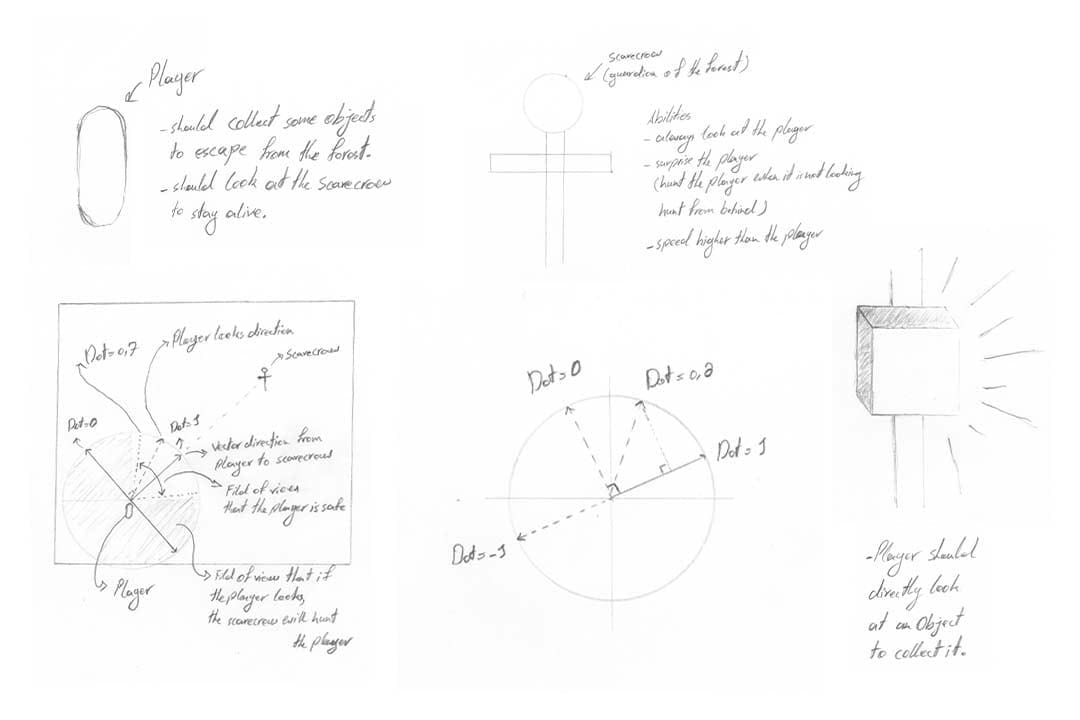 Player
- should collect some objects
to escape from the forest.
- should look at the scarecrow
to stay alive.
scarecrow
(guardian of the forest)
Abilities
- always look at the player
- surprise the player
(hunt the player when it is not looking
hunt from behind)
- speed higher than the player
Dot=0,7
Player looks direction
Scarecrow
Dot=0
Dot=1
Vector direction from
Player to scarecrow
Fild of view
that the player is safe
Player
Fild of view that if
the player looks,
the scarecrow will hunt
the player
Dot=0
Dot=1
Dot=-1
- Player should
directly look
at an Object
to collect it.